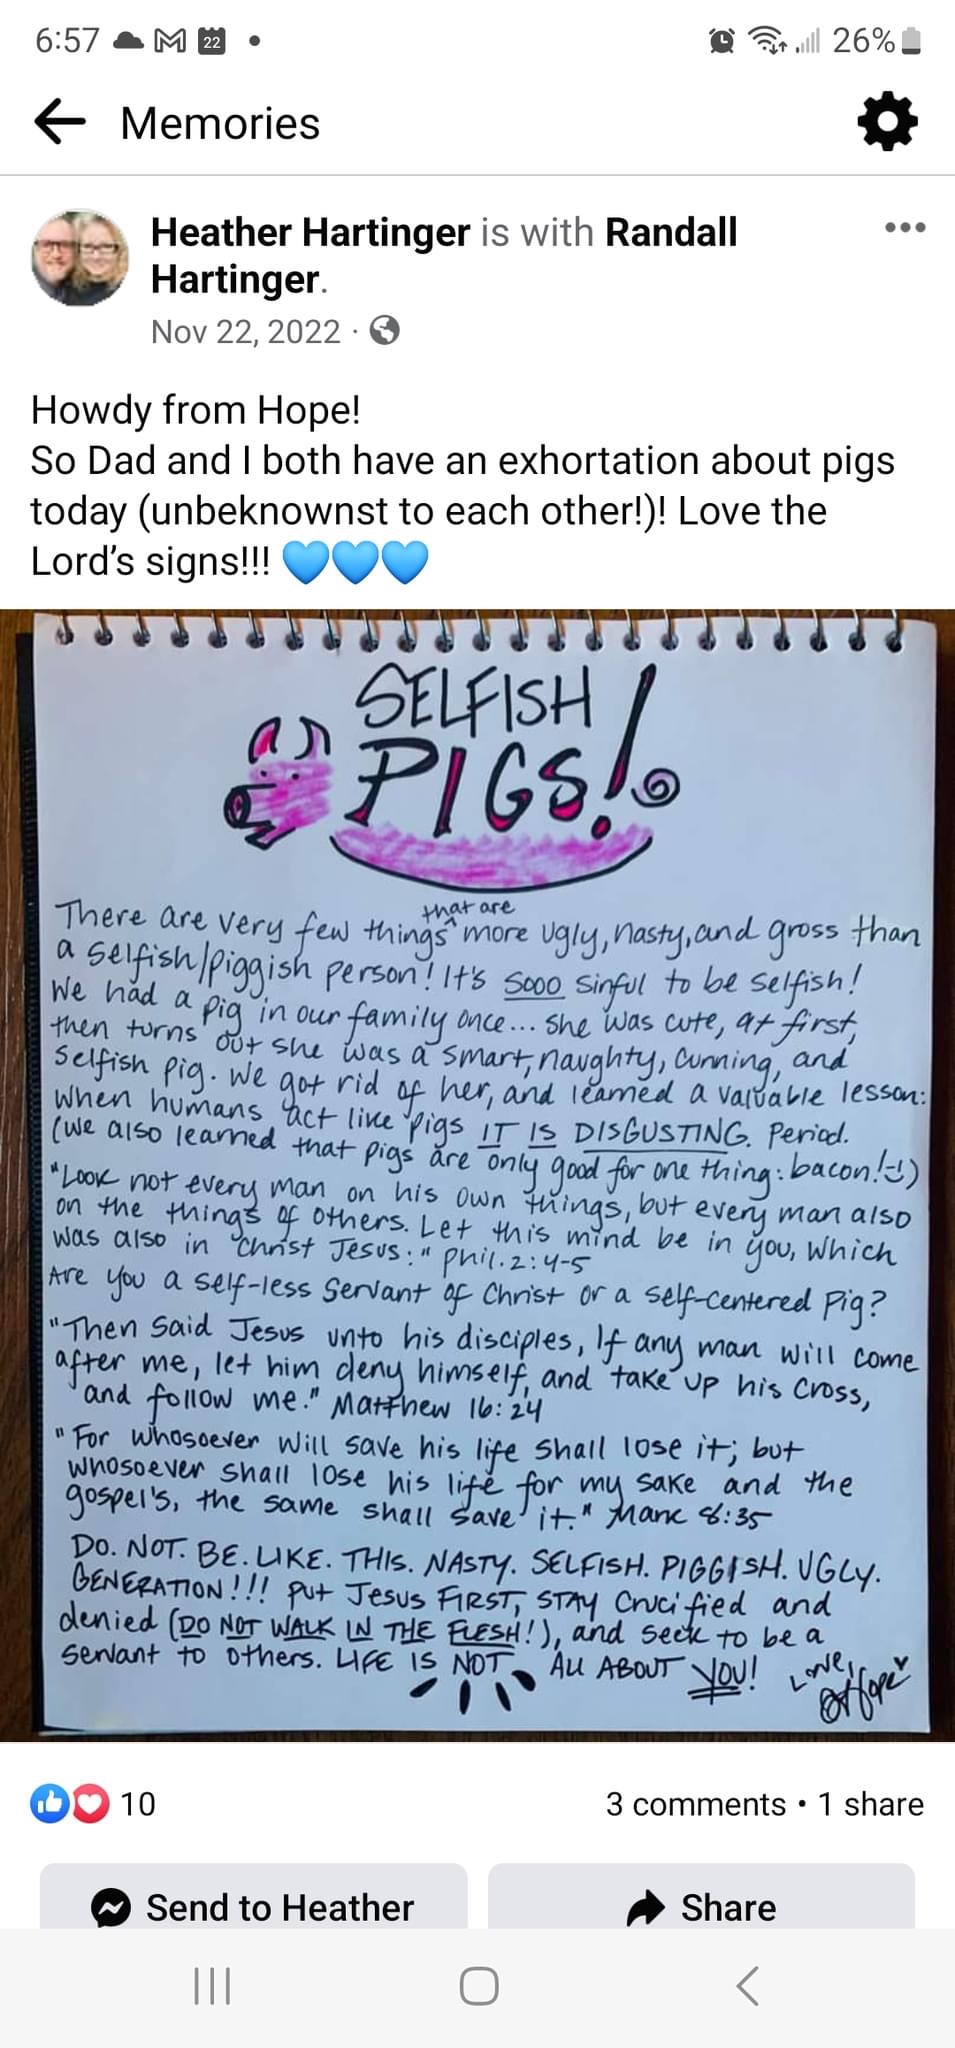 6:57
22
26%
Memories
Heather Hartinger is with Randall
Hartinger.
Nov 22, 2022 ·
Howdy from Hope!
So Dad and I both have an exhortation about pigs
today (unbeknownst to each other!)! Love the
Lord's signs!!! 💙💙💙
SELFISH
PIGS!
that are
There are very few things ^ more ugly, nasty, and gross than
a selfish/piggish person! It's sooo sinful to be selfish!
We had a pig in our family once... she was cute, at first,
then turns out she was a smart, naughty, cunning, and
selfish pig. We got rid of her, and learned a valuable lesson:
When humans act like pigs IT IS DISGUSTING. Period.
(We also learned that pigs are only good for one thing: bacon! :-))
"Look not every man on his own things, but every man also
on the things of others. Let this mind be in you, which
was also in Christ Jesus:" Phil. 2:4-5
Are you a self-less servant of Christ or a self-centered pig?
"Then said Jesus unto his disciples, If any man will come
after me, let him deny himself, and take up his cross,
and follow me." Matthew 16:24
"For whosoever will save his life shall lose it; but
whosoever shall lose his life for my sake and the
gospel's, the same shall save it." Mark 8:35
DO. NOT. BE. LIKE. THIS. NASTY. SELFISH. PIGGISH. UGLY.
GENERATION!!! Put Jesus FIRST, STAY crucified and
denied (DO NOT WALK IN THE FLESH!), and seek to be a
servant to others. LIFE IS NOT ALL ABOUT YOU!
Love,
Hope
10
3 comments • 1 share
Send to Heather
Share